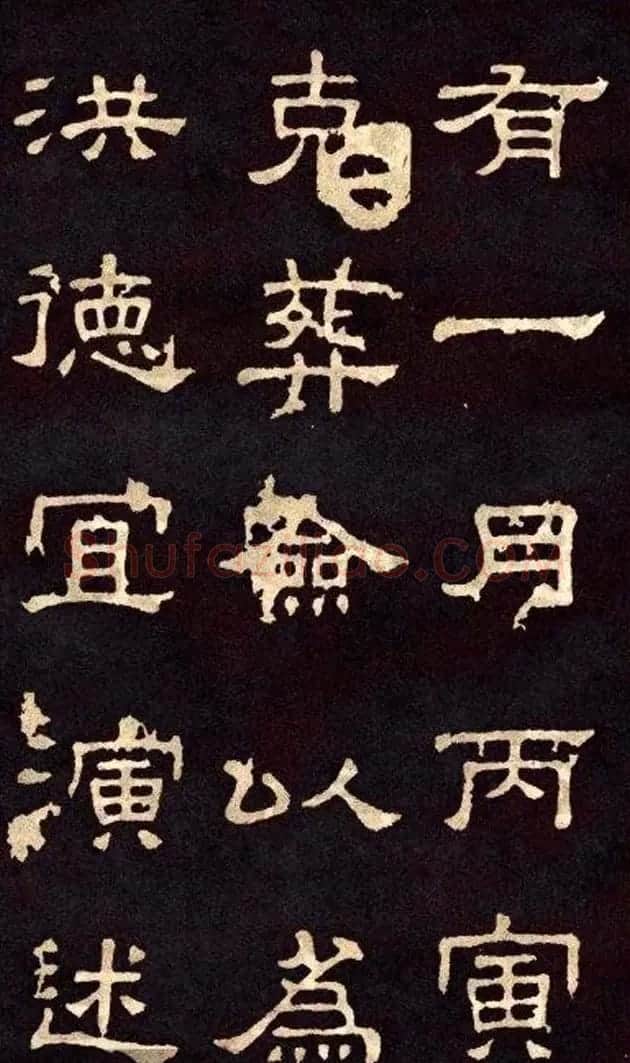 有一用丙寅
克葬僉以為
洪德宜演述
Shufaziliao.com